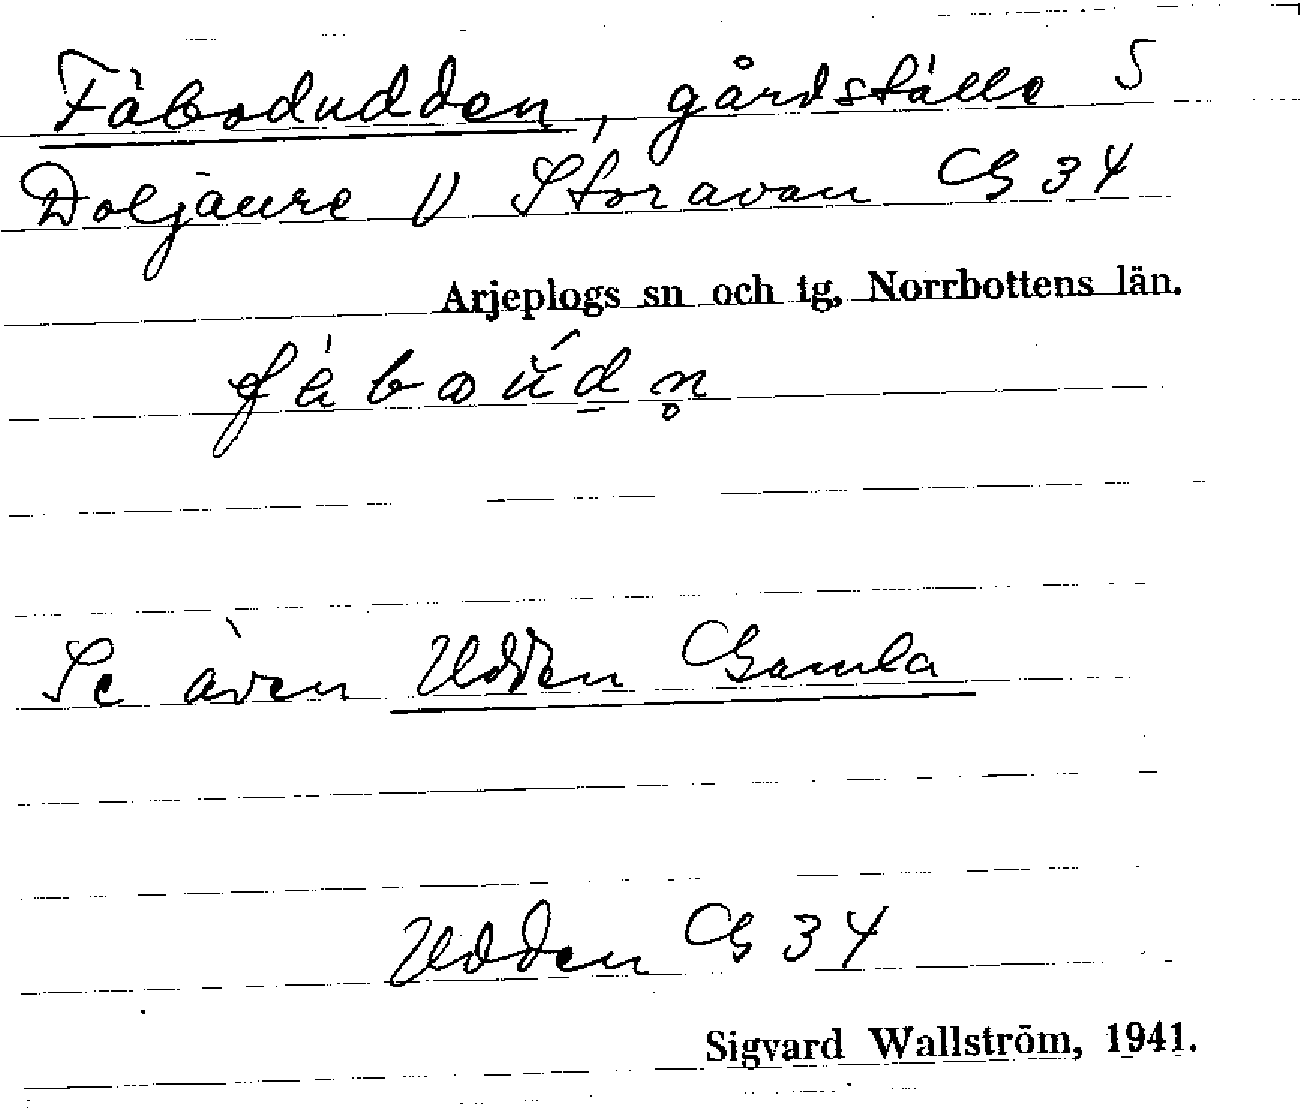 Fäbodudden, gårdställe S
Doljaure V Storavan G 34
Arjeplogs sn och tg, Norrbottens län.
Se även Udden Gamla
Udden G 34
Sigvard Wallström, 1941.